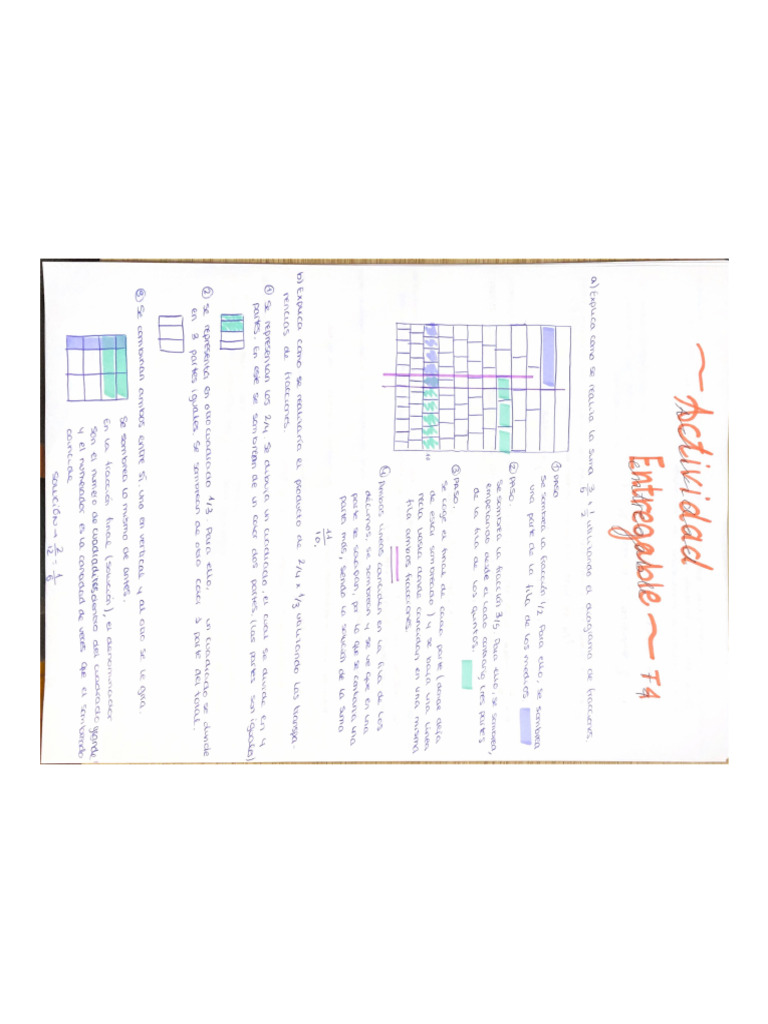 ~ Actividad
Entregable ~ T4
a) Explica como se realiza la suma 3/5 + 1/2 utilizando el diagrama de fracciones.
① PASO
Se sombrea la fracción 1/2. Para ello, se sombrea
una parte de la fila de los medios
② PASO.
Se sombrea la fracción 3/5. Para ello, se sombrea,
empezando desde el lado contrario, tres partes
de la fila de los quintos.
③ PASO.
Se coge el final de cada parte (donde deja
de estar sombreado) y se baja una línea
recta hasta donde coincidan en una misma
fila ambas fracciones.
④ Ambas líneas coinciden en la fila de los
décimos. Se sombrean y se ve que en una
parte se solapan, por lo que se contaría una
parte más, siendo la solución de la suma
11/10.
b) Explica como se realizaría el producto de 2/4 x 1/3 utilizando las transpa-
rencias de fracciones.
① Se representan los 2/4. Se dibuja un cuadrado el cual se divide en 4
partes. En este se sombrean de un color dos partes (las partes son iguales)
② Se representa en otro cuadrado 1/3. Para ello, un cuadrado se divide
en 3 partes iguales. Se sombrea de otro color 1 parte del total.
③ Se combinan ambos entre sí, uno en vertical y al otro se le gira.
Se sombrea lo mismo de antes.
En la fracción final (solución), el denominador
son el número de cuadraditos dentro del cuadrado grande
y el numerador es la cantidad de veces que el sombreado
coincide
SOLUCIÓN → 2/12 = 1/6